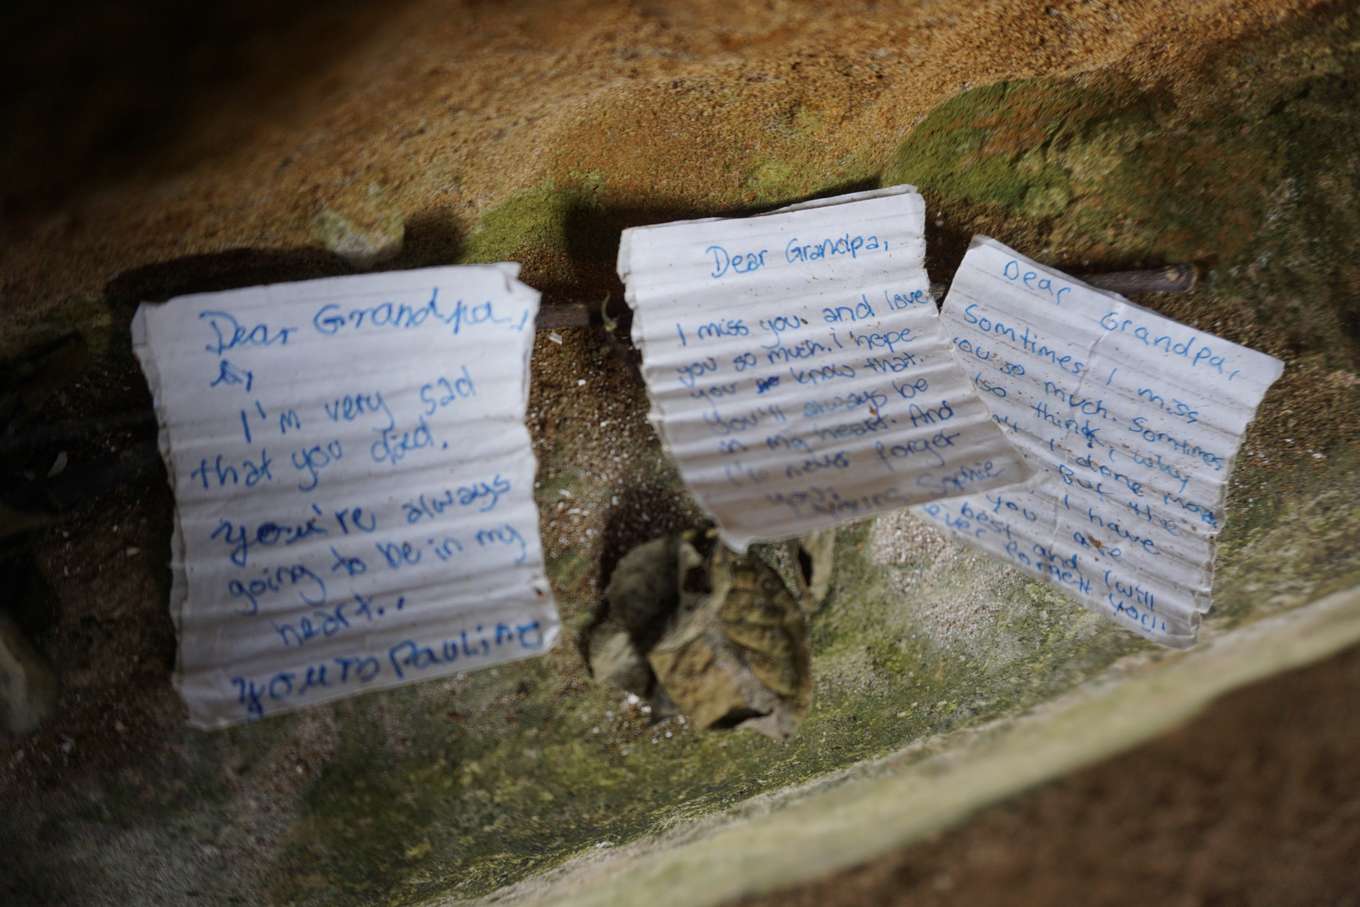 Dear Grandpa,
I'm very sad
that you died.
you're always
going to be in my
heart..
Dear Grandpa,
I miss you and love
you so much. i hope
you know that
you'll always be
in my heart. And
never forget
you.
Sophie
Dear Grandpa,
Somtimes I miss
so much. Somtimes
think. why
done more
But the
you I have
are
best and I will
you!!